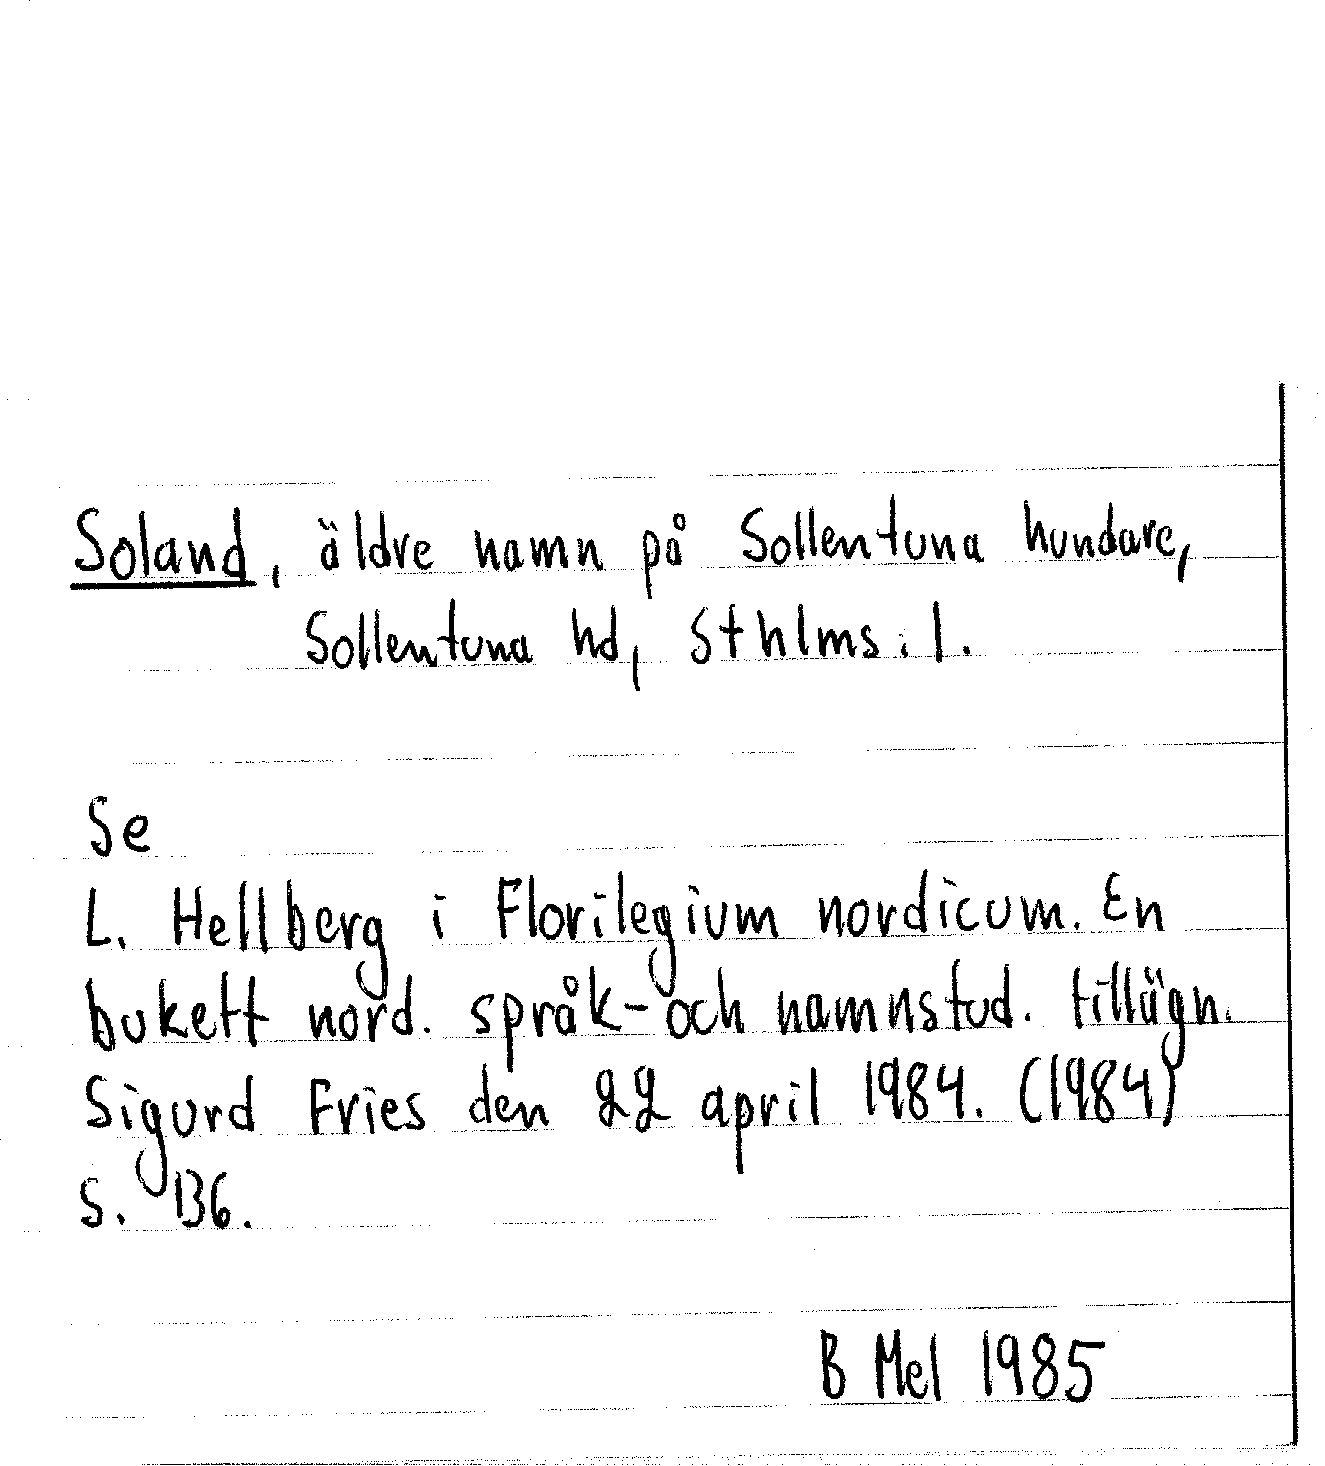 Soland, äldre namn på Sollentuna hundare,
Sollentuna hd, Sthlms. l.
Se
L. Hellberg i Florilegium nordicum. En
bukett nord. språk- och namnstud. tillägn.
Sigurd Fries den 22 april 1984. (1984)
s. 136.
B Mel 1985